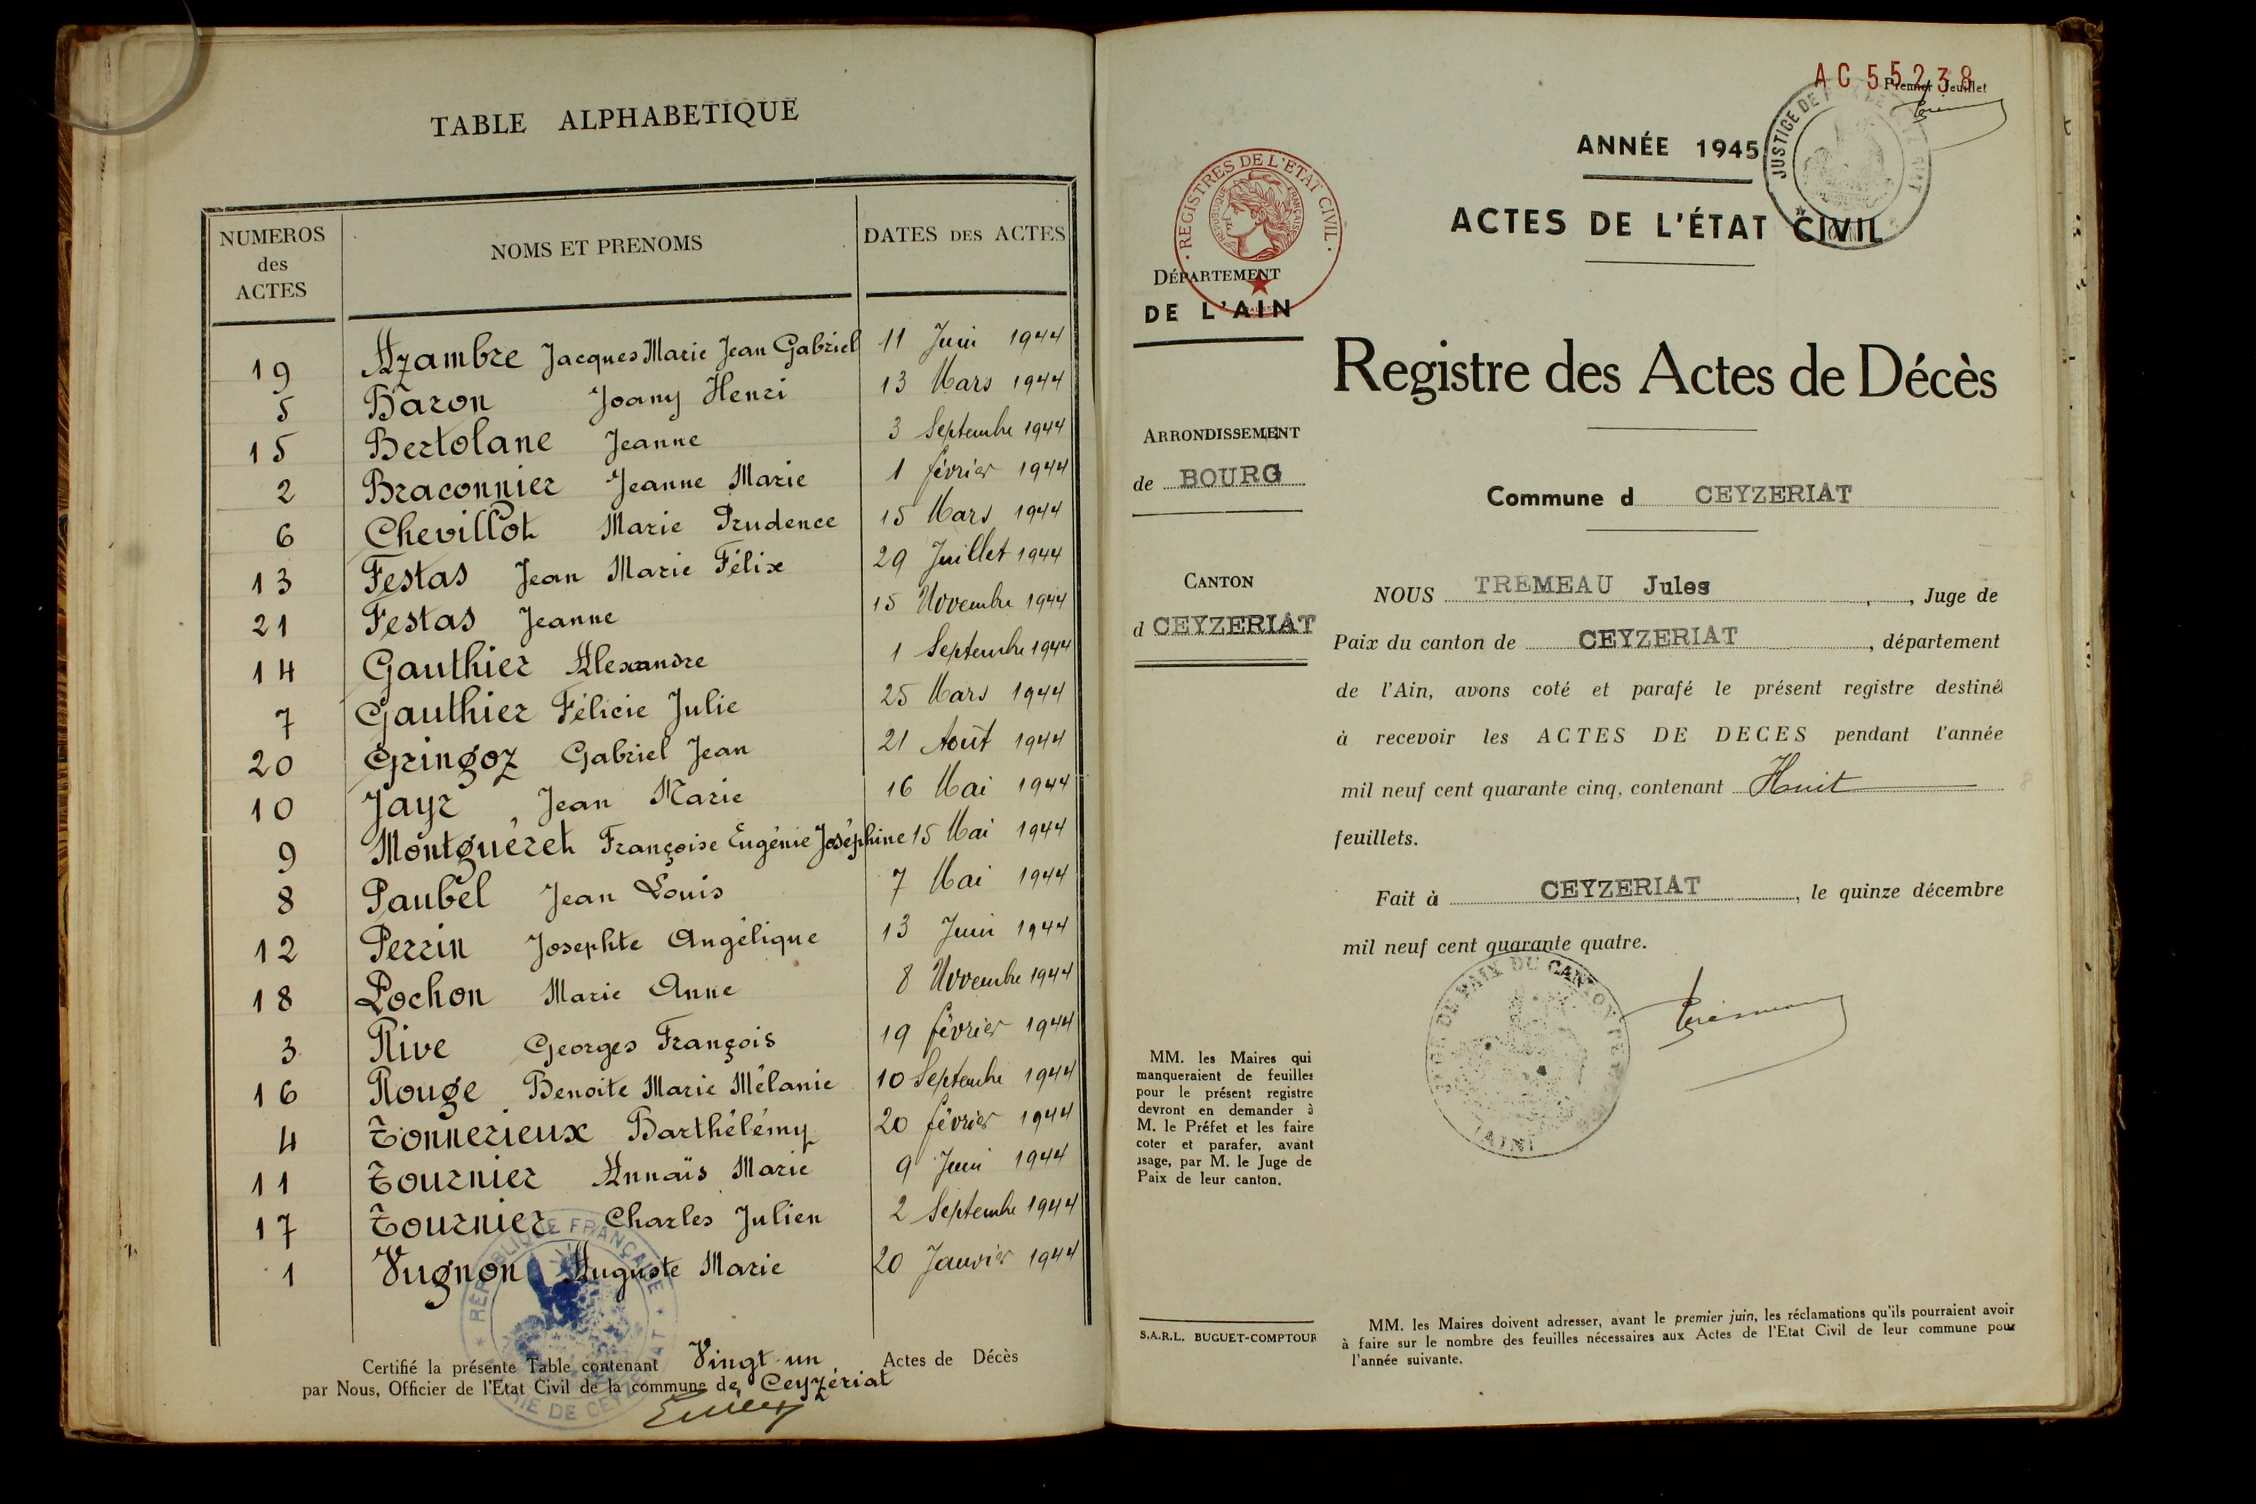 TABLE ALPHABETIQUE
NUMEROS des ACTES
NOMS ET PRENOMS
DATES DES ACTES
19 Azambre Jacques Marie Jean Gabriel 11 Juin 1944
5 Baron Joany Henri 13 Mars 1944
15 Bertolane Jeanne 3 Septembre 1944
2 Braconnier Jeanne Marie 1 février 1944
6 Chevillot Marie Prudence 15 Mars 1944
13 Festas Jean Marie Félix 29 Juillet 1944
21 Festas Jeanne 15 Novembre 1944
14 Gauthier Alexandre 1 Septembre 1944
7 Gauthier Félicie Julie 25 Mars 1944
20 Gringoz Gabriel Jean 21 Août 1944
10 Jayr, Jean Marie 16 Mai 1944
9 Montguéret Françoise Eugénie Joséphine 15 Mai 1944
8 Paubel Jean Louis 7 Mai 1944
12 Perrin Josephte Angélique 13 Juin 1944
18 Pochon Marie Anne 8 Novembre 1944
3 Rive Georges François 19 février 1944
16 Rouge Benoite Marie Mélanie 10 Septembre 1944
4 Tonnerieux Barthélémy 20 février 1944
11 Tournier Annaïs Marie 9 Juin 1944
17 Tournier Charles Julien 2 Septembre 1944
1 Vugnon Auguste Marie 20 Janvier 1944
RÉPUBLIQUE FRANÇAISE
MAIRIE DE CEYZERIAT
Certifié la présente Table contenant Vingt-un Actes de Décès
par Nous, Officier de l'Etat Civil de la commune de Ceyzériat
AC 55238
Premier feuillet
JUSTICE DE
ANNÉE 1945
ACTES DE L'ÉTAT CIVIL
REGISTRES DE L'ETAT CIVIL
REPUBLIQUE FRANÇAISE
DÉPARTEMENT
DE L'AIN
Registre des Actes de Décès
ARRONDISSEMENT
de BOURG
Commune d CEYZERIAT
CANTON
d CEYZERIAT
NOUS TREMEAU Jules, Juge de
Paix du canton de CEYZERIAT, département
de l'Ain, avons coté et parafé le présent registre destiné
à recevoir les ACTES DE DECES pendant l'année
mil neuf cent quarante cinq, contenant Huit 8
feuillets.
Fait à CEYZERIAT, le quinze décembre
mil neuf cent quarante quatre.
DE PAIX DU CANTON
(AIN)
MM. les Maires qui
manqueraient de feuilles
pour le présent registre
devront en demander à
M. le Préfet et les faire
coter et parafer, avant
usage, par M. le Juge de
Paix de leur canton.
S.A.R.L. BUGUET-COMPTOUR
MM. les Maires doivent adresser, avant le premier juin, les réclamations qu'ils pourraient avoir
à faire sur le nombre des feuilles nécessaires aux Actes de l'Etat Civil de leur commune pour
l'année suivante.